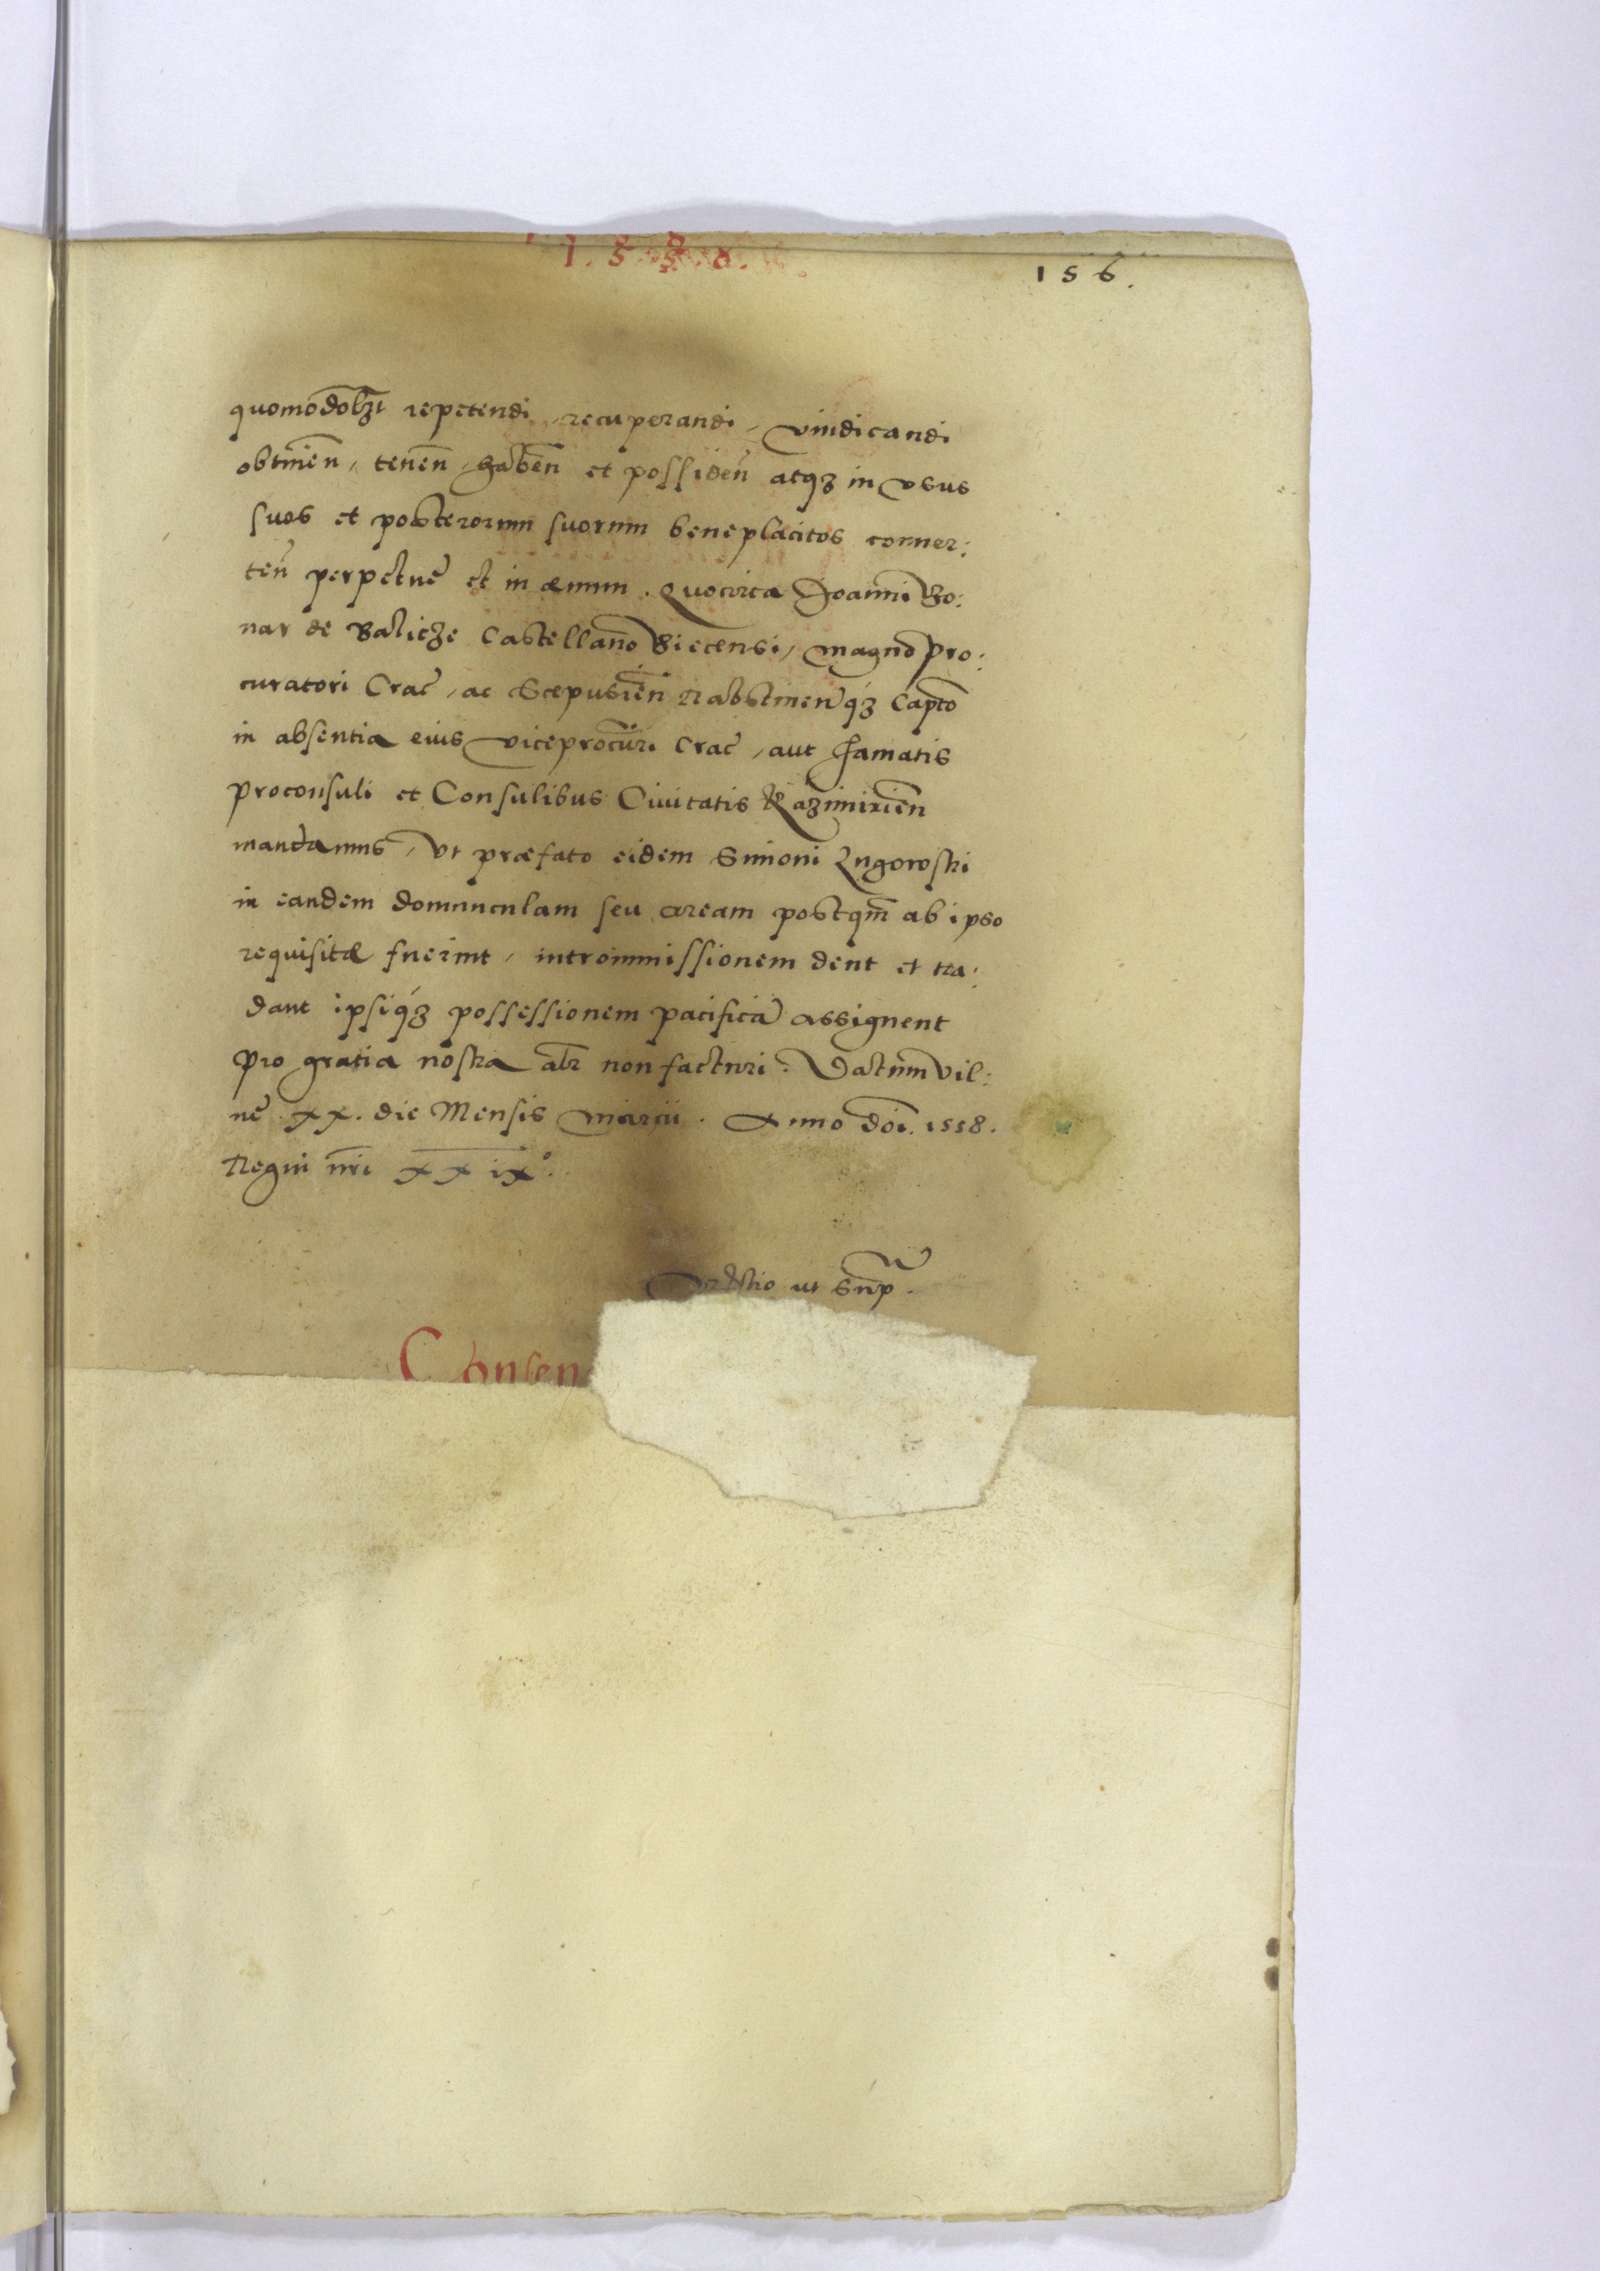 1.5.5.8.
156.
quomodolʒt repetendi, recuperandi, vindicandi
obtineñ, teneñ, habeñ et possideñ atqʒ in vsus
suos et posterorum suorum beneplacitos conuer:
teñ perpetue et in æuum. Quocirca Joanni Bo:
nar de Balicze Castellano Biecensi, magno pro:
curatori Crac̃, ac Scepusieñ Rabstineñqʒ Capto
in absentia eius viceprocuri Crac̃, aut famatis
proconsuli et Consulibus Ciuitatis Kazimirieñ
mandamus, vt præfato eidem Simoni Lugowski
in eandem domunculam seu aream postqm̃ ab ipso
requisitæ fuerint, intromissionem dent et tra:
dant ipsiqʒ possessionem pacificã assignent
pro gratia nostra alr̃ non facturi. Datum Vil:
nę XX. die Mensis Marcii. Anno doi. 1558.
Regni nr̃i XXIX°.
ut Supr̃.
Consen